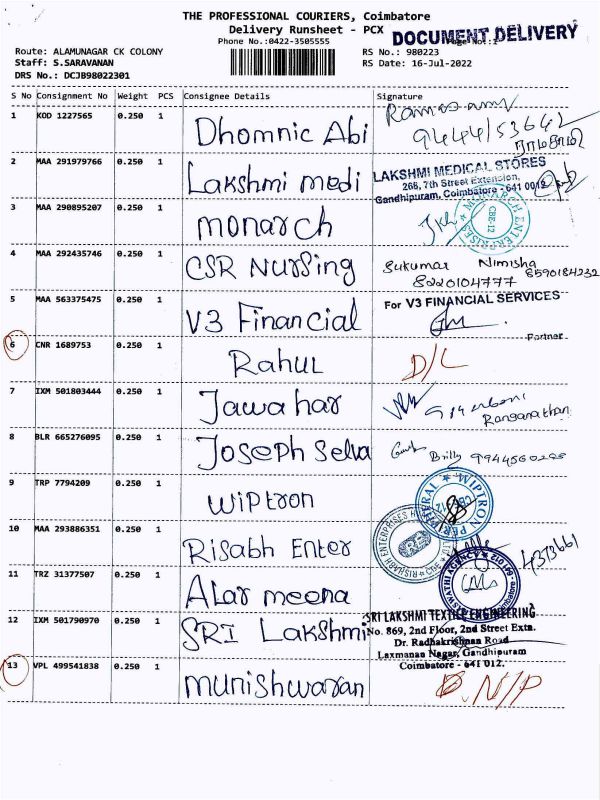 THE PROFESSIONAL COURIERS, Coimbatore
Delivery Runsheet - PCX
DOCUMENT DELIVERY
Phone No.:0422-3505555
Route: ALAMUNAGAR CK COLONY
RS No.: 980223
Staff: S.SARAVANAN
RS Date: 16-Jul-2022
DRS No.: DCJB98022301
S No Consignment No Weight PCS Consignee Details Signature
1 KOD 1227565 0.250 1 Dhomnic Abi Ramasamy
ராமசாமி
2 MAA 291979766 0.250 1 Lakshmi medi LAKSHMI MEDICAL STORES
268, 7th Street Extension,
Gandhipuram, Coimbatore - 641 012
3 MAA 290895207 0.250 1 monarch MONARCH ENTERPRISES CBE-12
4 MAA 292435746 0.250 1 CSR Nursing Sukumar Nimisha
8220104777 8590184232
5 MAA 563375475 0.250 1 V3 Financial For V3 FINANCIAL SERVICES
Partner
6 CNR 1689753 0.250 1 Rahul D/L
7 IXM 501803444 0.250 1 Jawahar
Ranganathan
8 BLR 665276095 0.250 1 Joseph Selva Brilly
9 TRP 7794209 0.250 1 Wiptron WIPTRON PERIPHERAL CBE-12
10 MAA 293886351 0.250 1 Risabh Enter
4373661
11 TRZ 31377507 0.250 1 Alar meena
12 IXM 501790970 0.250 1 SRI Lakshmi SRI LAKSHMI TEXTILE ENGINEERING
No. 869, 2nd Floor, 2nd Street Extn.
Dr. Radhakrishnan Road
Laxmanan Nagar, Gandhipuram
Coimbatore - 641 012.
13 VPL 499541838 0.250 1 munishwaran D. N/P